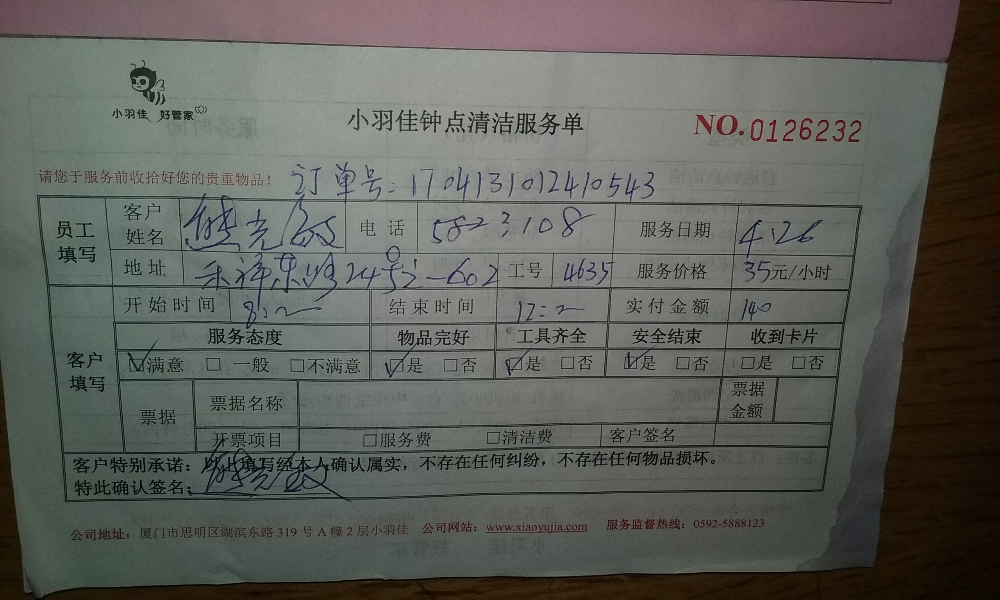 小羽佳 好管家
小羽佳钟点清洁服务单
NO.0126232
请您于服务前收拾好您的贵重物品！ 订单号：1704131012410543
员工填写 客户姓名 熊 电话 5822108 服务日期 4.26
地址 东路24号 602 工号 4635 服务价格 35元/小时
客户填写 开始时间 8: 结束时间 12: 实付金额 140
服务态度 物品完好 工具齐全 安全结束 收到卡片
☑满意 □ 一般 □不满意 ☑是 □否 ☑是 □否 ☑是 □否 □是 □否
票据 票据名称 票据金额
开票项目 □服务费 □清洁费 客户签名
客户特别承诺：以上填写经本人确认属实，不存在任何纠纷，不存在任何物品损坏。
特此确认签名：
公司地址：厦门市思明区湖滨东路 319 号 A 幢 2 层小羽佳 公司网站：www.xiaoyujia.com 服务监督热线：0592-5888123